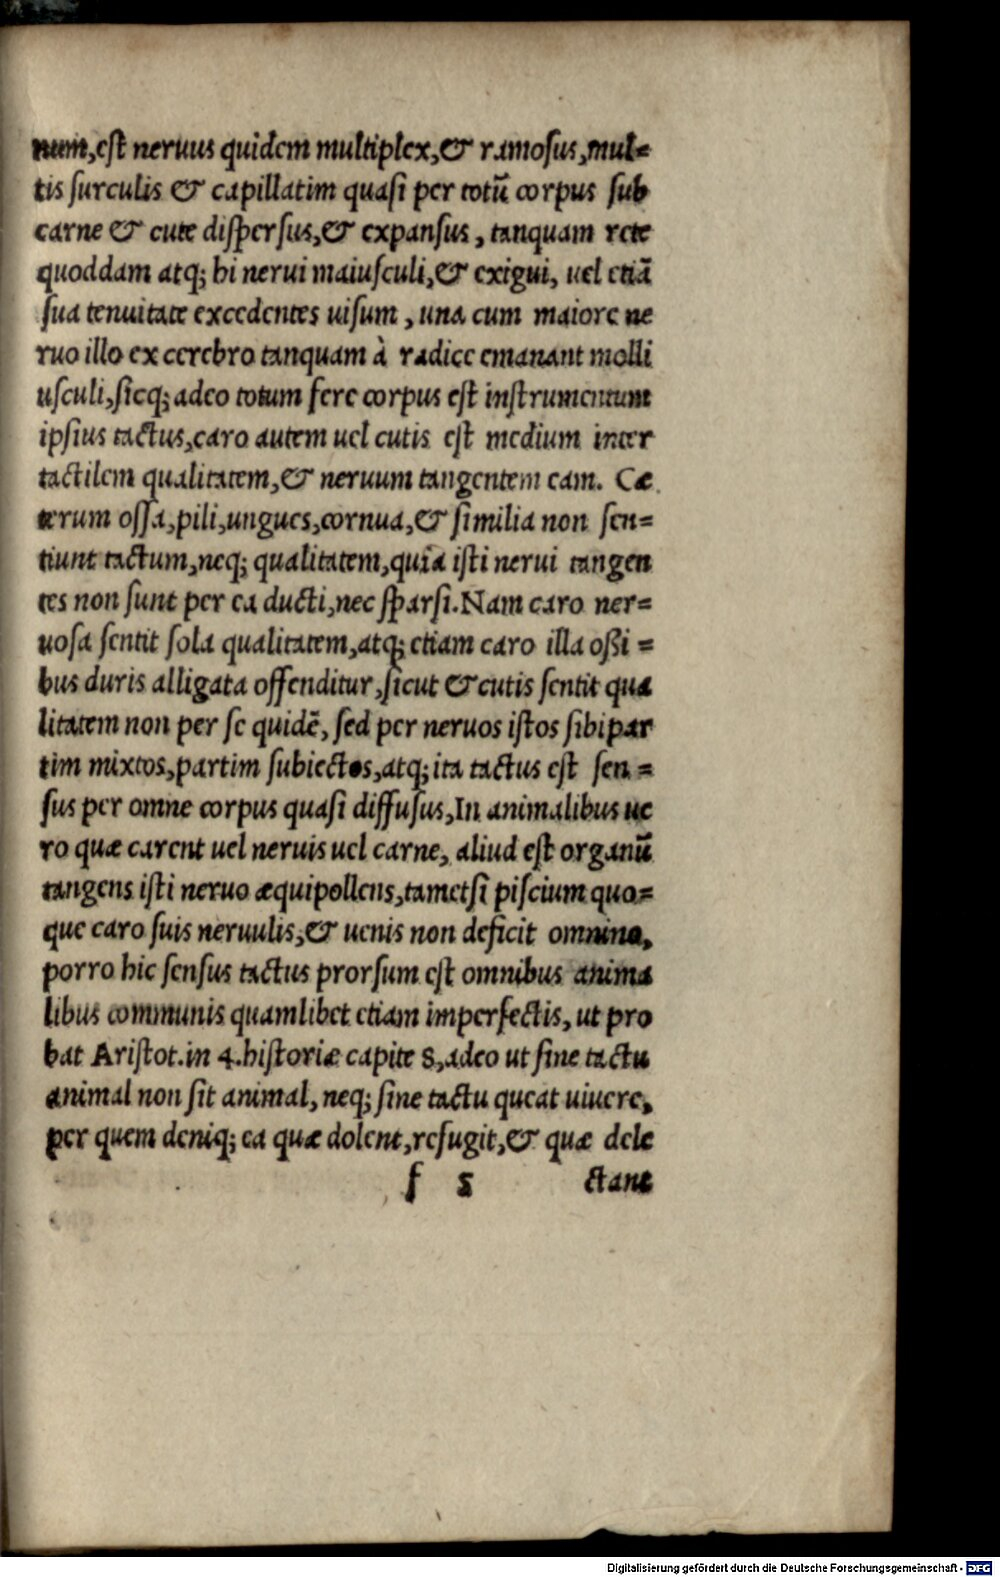 num, est neruus quidem multiplex, & ramosus, mul=
tis surculis & capillatim quasi per totũ corpus sub
carne & cute dispersus, & expansus, tanquam rete
quoddam atq; hi nerui maiusculi, & exigui, uel etiã
sua tenuitate excedentes uisum, una cum maiore ne
ruo illo ex cerebro tanquam à radice emanant molli
usculi, sicq; adeo totum fere corpus est instrumentum
ipsius tactus, caro autem uel cutis est medium inter
tactilem qualitatem, & neruum tangentem eam. Cæ
terum ossa, pili, ungues, cornua, & similia non sen=
tiunt tactum, neq; qualitatem, quia isti nerui tangen
tes non sunt per ea ducti, nec sparsi. Nam caro ner=
uosa sentit sola qualitatem, atq; etiam caro illa oßi=
bus duris alligata offenditur, sicut & cutis sentit qua
litatem non per se quidẽ, sed per neruos istos sibi par
tim mixtos, partim subiectos, atq; ita tactus est sen=
sus per omne corpus quasi diffusus, In animalibus ue
ro quæ carent uel neruis uel carne, aliud est organũ
tangens isti neruo æquipollens, tametsi piscium quo=
que caro suis neruulis, & uenis non deficit omnino,
porro hic sensus tactus prorsum est omnibus anima
libus communis quamlibet etiam imperfectis, ut pro
bat Aristot. in 4. historiæ capite 8, adeo ut sine tactu
animal non sit animal, neq; sine tactu queat uiuere,
per quem deniq; ea quæ dolent, refugit, & quæ dele
f 5 ctant
Digitalisierung gefördert durch die Deutsche Forschungsgemeinschaft - DFG